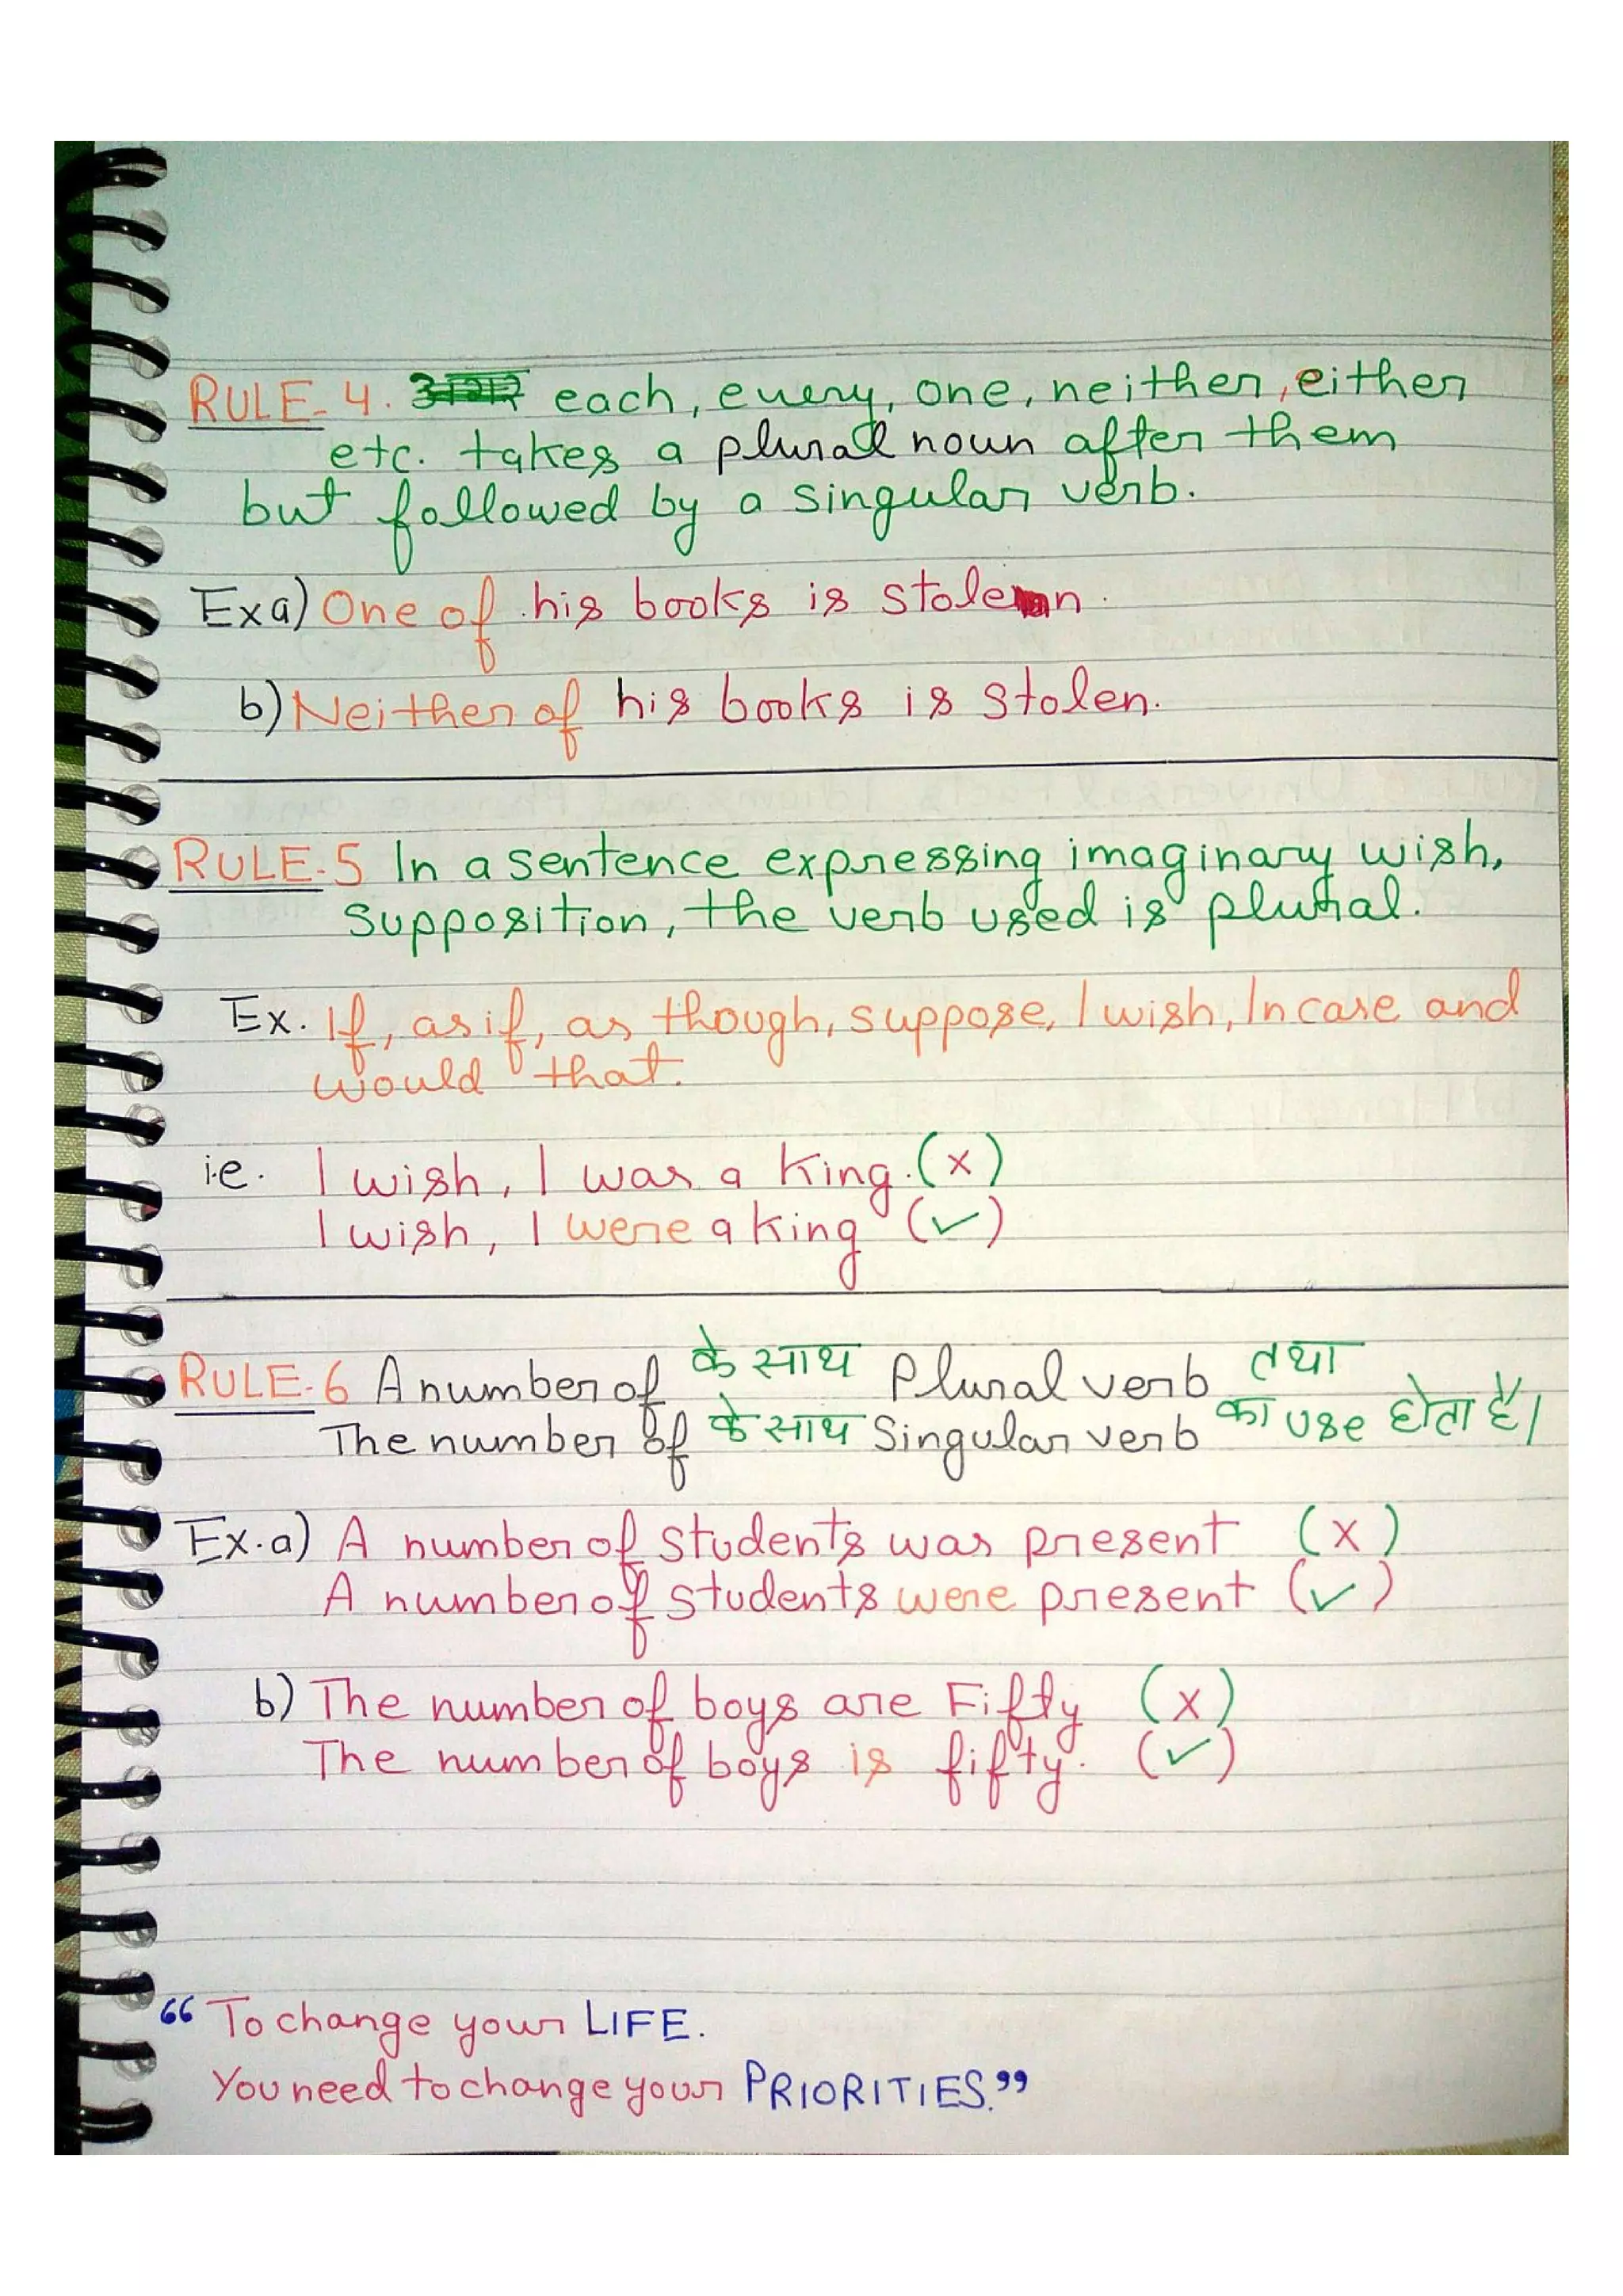 RULE-4. each, every, one, neither, either
etc. takes a plural noun after them
but followed by a singular verb.
Ex a) One of his books is stolen.
b) Neither of his books is stolen.
RULE-5 In a sentence expressing imaginary wish,
supposition, the verb used is plural.
Ex. If, as if, as though, suppose, I wish, In case and
would that.
i.e. I wish, I was a king. (x)
I wish, I were a king (✓)
RULE-6 A number of के साथ Plural verb तथा
The number of के साथ Singular verb का use होता है।
Ex.a) A number of students was present (x)
A number of students were present (✓)
b) The number of boys are Fifty (x)
The number of boys is fifty. (✓)
“To change your LIFE.
You need to change your PRIORITIES.”